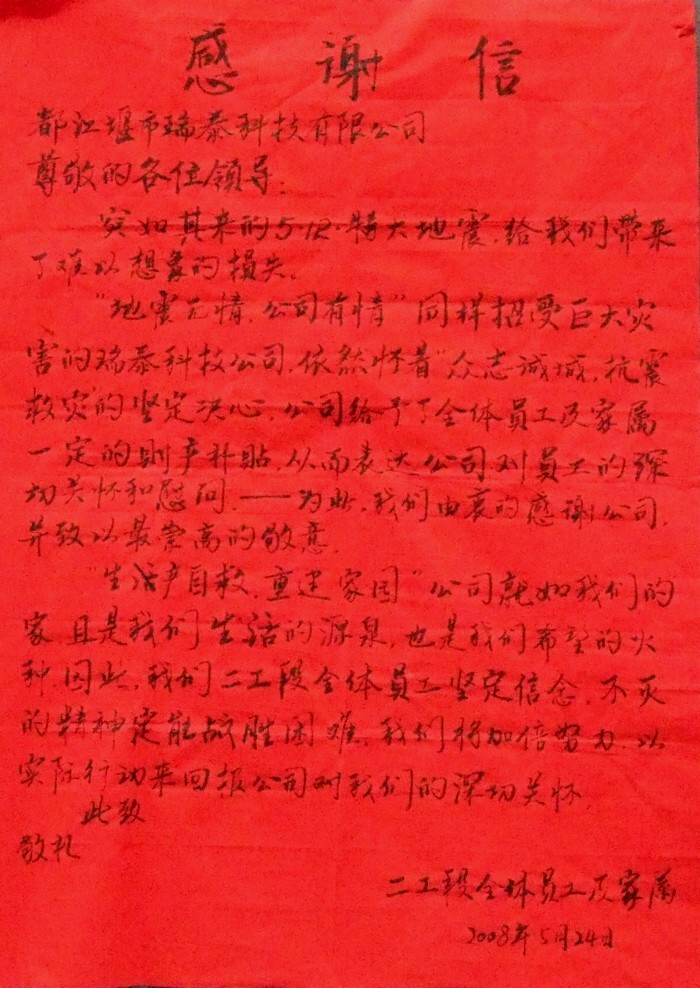 感谢信
都江堰市瑞泰科技有限公司
尊敬的各位领导:
突如其来的5·12·特大地震,给我们带来
了难以想象的损失。
"地震无情,公司有情"同样招受巨大灾
害的瑞泰科技公司,依然怀着"众志诚城,抗震
救灾"的坚定决心,公司给予了全体员工及家属
一定的财产补贴,从而表达公司对员工的深
切关怀和慰问,——为此,我们由衷的感谢公司,
并致以最崇高的敬意。
"生活产自救,重建家园"公司就如我们的
家且是我们生活的源泉,也是我们希望的火
种,因此,我们二工段全体员工坚定信念,不灭
的精神定能战胜困难,我们将加倍努力,以
实际行动来回报公司对我们的深切关怀,
此致
敬礼
二工段全体员工及家属
2008年5月24日